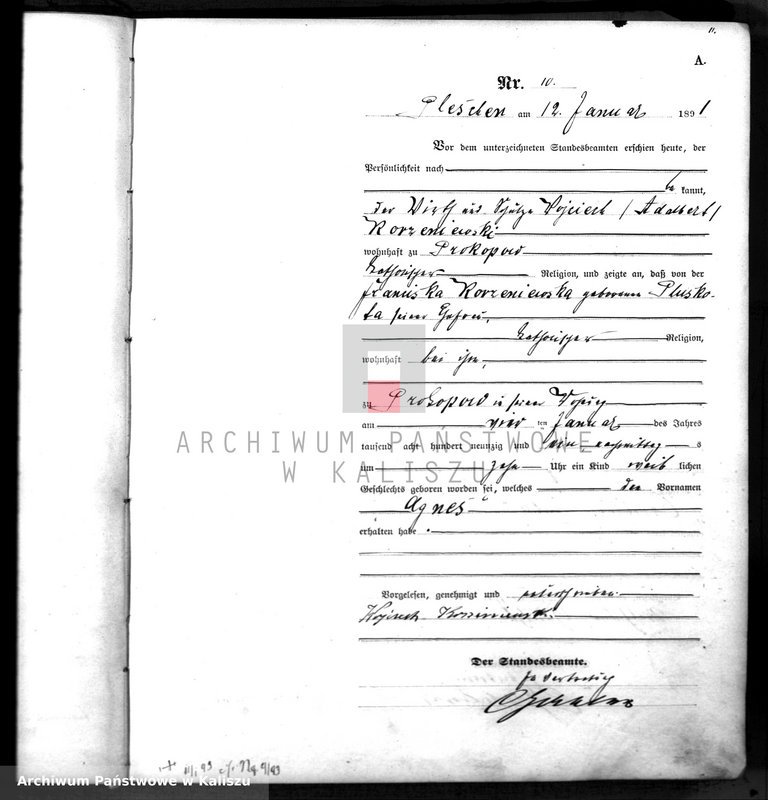 11.
A.
Nr. 10.
Pleschen am 12. Januar 1891
Vor dem unterzeichneten Standesbeamten erschien heute, der
Persönlichkeit nach
be kannt,
der Wirth und Schulze Wojciech / Adalbert /
Korzeniewski
wohnhaft zu Prokopow
katholischer Religion, und zeigte an, daß von der
Franciska Korzeniewska geborenen Plusko-
ta seiner Ehefrau,
katholischer Religion,
wohnhaft bei ihm,
zu Prokopow in seiner Wohnung
am vier ten Januar des Jahres
tausend acht hundert neunzig und ein, nachmittag s
um zehn Uhr ein Kind weib lichen
Geschlechts geboren worden sei, welches den Vornamen
Agnes
erhalten habe.
Vorgelesen, genehmigt und unterschrieben.
Wojciech
Der Standesbeamte.
In Vertretung
ARCHIWUM PAŃSTWOWE
W KALISZU
Archiwum Państwowe w Kaliszu